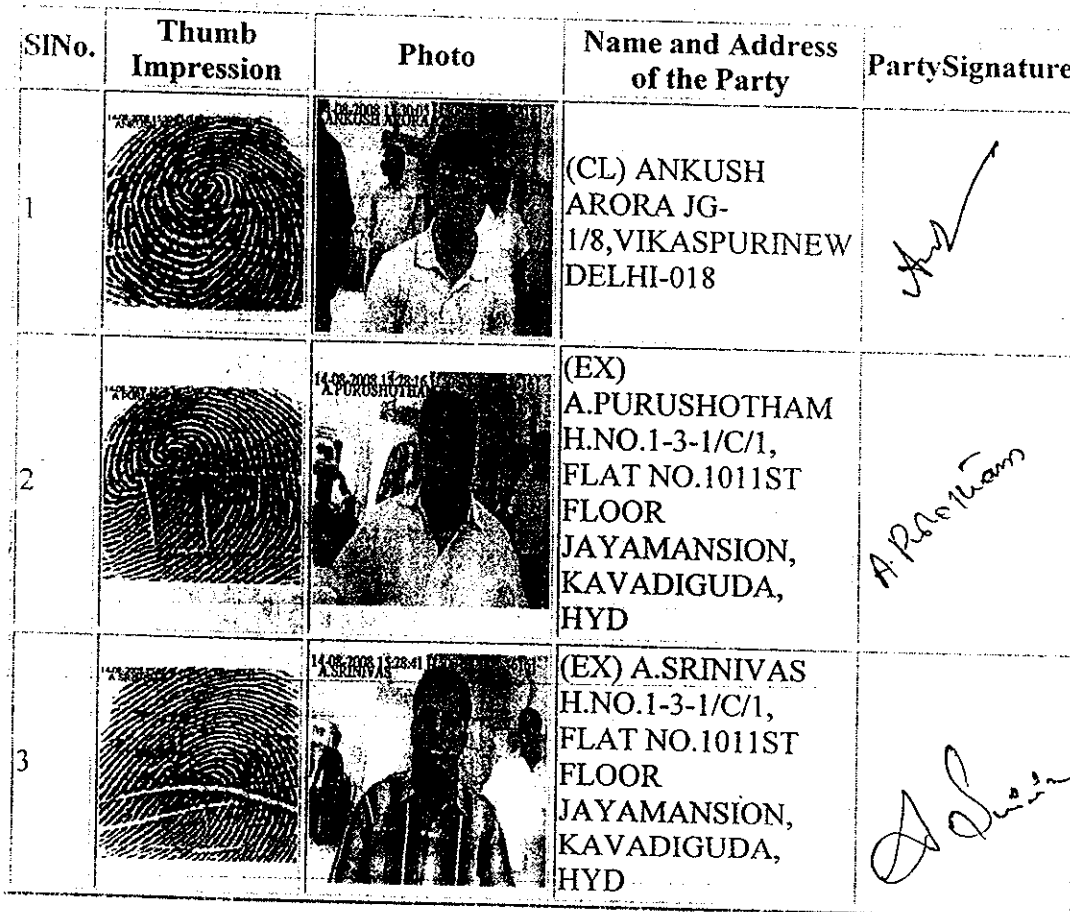 SlNo.
Thumb
Impression
Photo
Name and Address
of the Party
PartySignature
1
ANKUSH ARORA
(CL) ANKUSH
ARORA JG-
1/8,VIKASPURINEW
DELHI-018
2
14-08-2008 13:28:16
A.PURUSHOTHAM
(EX)
A.PURUSHOTHAM
H.NO.1-3-1/C/1,
FLAT NO.1011ST
FLOOR
JAYAMANSION,
KAVADIGUDA,
HYD
3
14-08-2008 13:28:41
A.SRINIVAS
(EX) A.SRINIVAS
H.NO.1-3-1/C/1,
FLAT NO.1011ST
FLOOR
JAYAMANSION,
KAVADIGUDA,
HYD